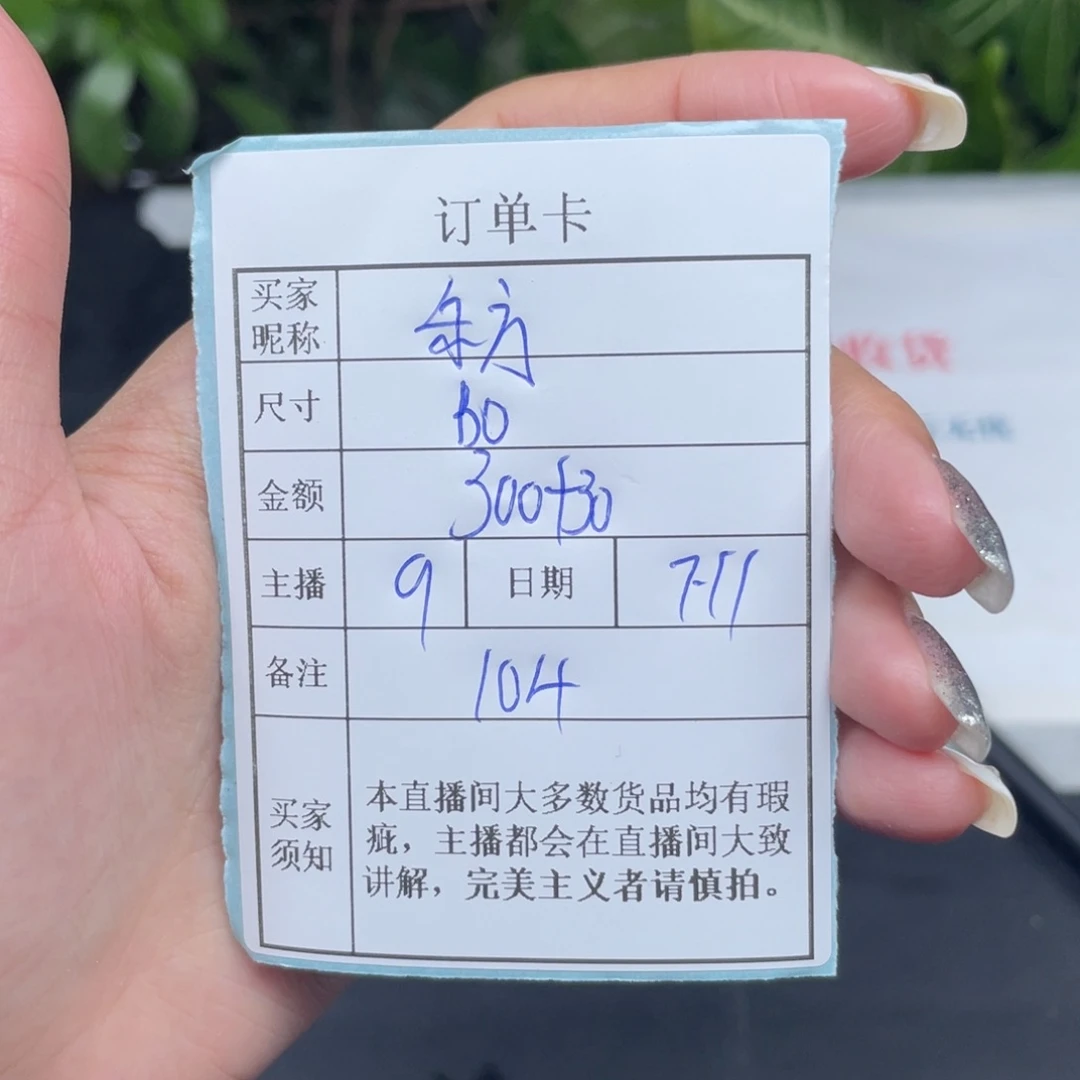 订单卡
买家
昵称
东方
尺寸
金额 300+30
主播 9 日期 7-11
备注 104
买家
须知
本直播间大多数货品均有瑕
疵，主播都会在直播间大致
讲解，完美主义者请慎拍。
收货